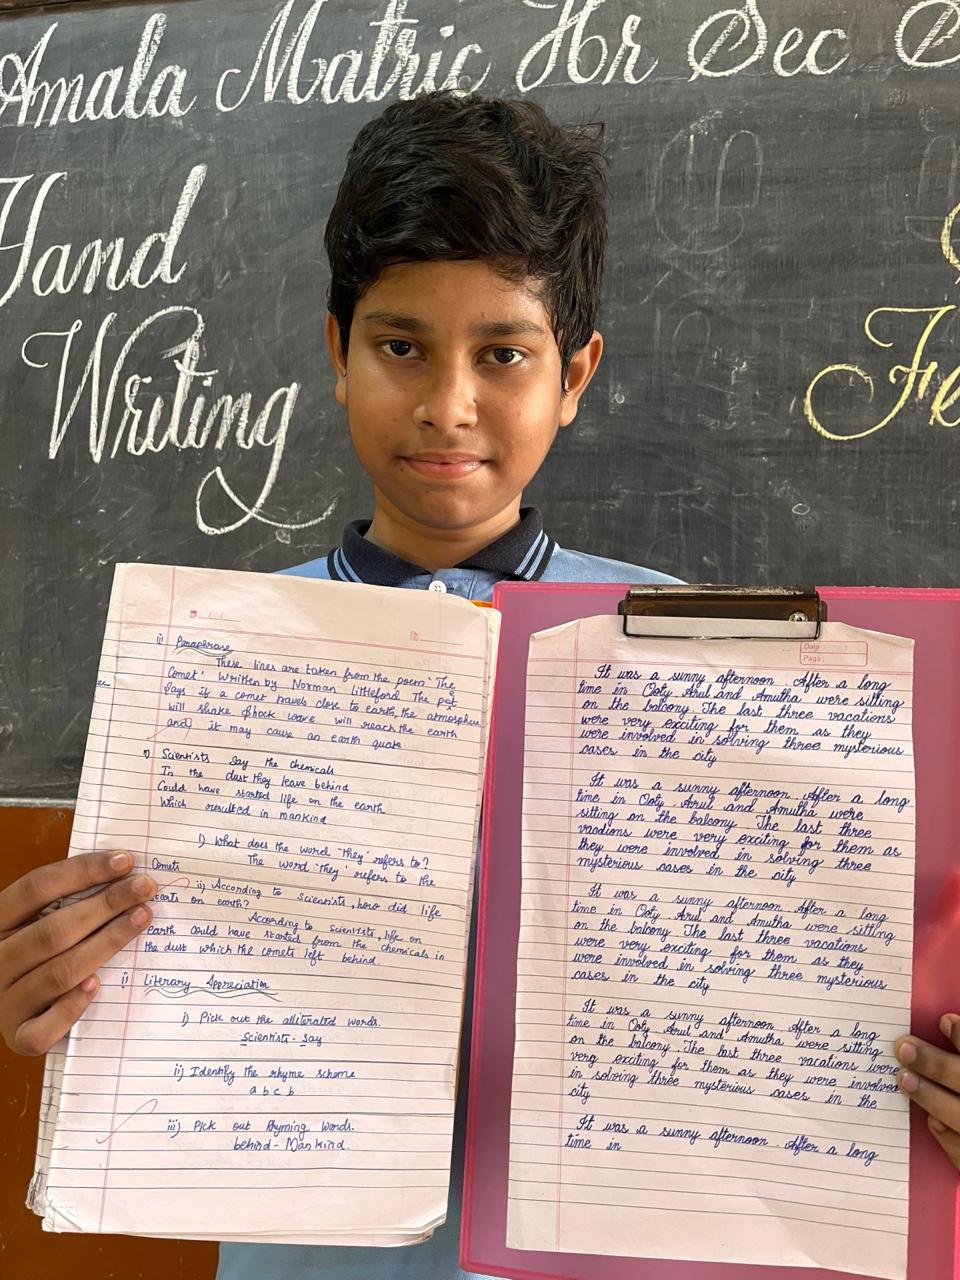 Amala Matric Hr Sec
Hand
Writing
ii) Paraphrase
These lines are taken from the poem 'The
Comet'. Written by Norman Littleford The pat
Says if a comet travels close to earth, the atmosphere
will shake shock wave will reach the earth
and it may cause an earth quate
Scientists say the chemicals
In the dust they leave behind
Could have started life on the earth
Which resulted in mankind
i) What does the word 'they' refers to?
The word 'They' refers to the
Comets
ii) According to scientists, how did life
starts on earth?
According to scientists, life on
earth could have started from the chemicals in
the dust which the comets left behind.
i) Literary Appreciation
i) Pick out the alliterated words.
Scientists - Say
ii) Identify the rhyme scheme
a b c b
iii) Pick out Rhyming Words.
behind - Mankind.
Date:
Page:
It was a sunny afternoon. After a long
time in Ooty Arul and Amutha were sitting
on the balcony. The last three vacations
were very exciting for them as they
were involved in solving three mysterious
cases in the city
It was a sunny afternoon. After a long
time in Ooty. Arul and Amutha were
sitting on the balcony. The last three
vacations were very exciting for them as
they were involved in solving three
mysterious cases in the city
It was a sunny afternoon. After a long
time in Ooty. Arul and Amutha were sitting
on the balcony The last three vacations
were very exciting for them as they
were involved in solving three mysterious
cases in the city
It was a sunny afternoon. After a long
time in Ooty Arul and Amutha were sitting
on the balcony. The last three vacations were
very exciting for them as they were involved
in solving three mysterious cases in the
city
It was a sunny afternoon. After a long
time in